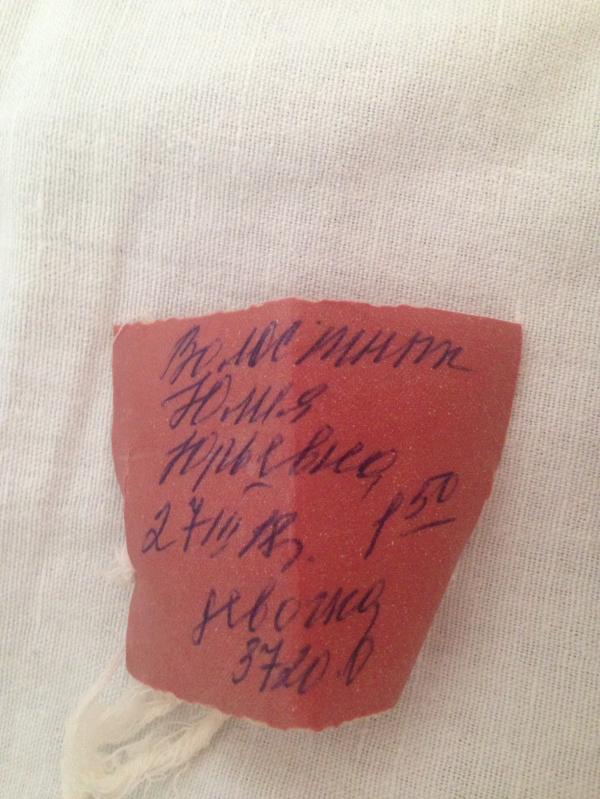 Волостник
Юлия
Юрьевна
27 III 18г. 1 50
девочка
3720.0